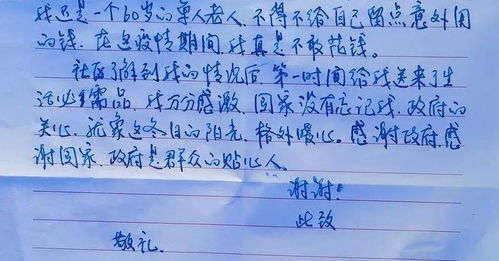 我还是一个60岁的单人老人,不得不给自己留点意外用
的钱。在这疫情期间,我真是不敢花钱。
社区了解到我的情况后,第一时间给我送来了生
活必需品,我万分感激,国家没有忘记我,政府的
关心,就象这冬日的阳光,格外暖心。感谢政府,感
谢国家,政府是群众的贴心人。
谢谢!
此致
敬礼.